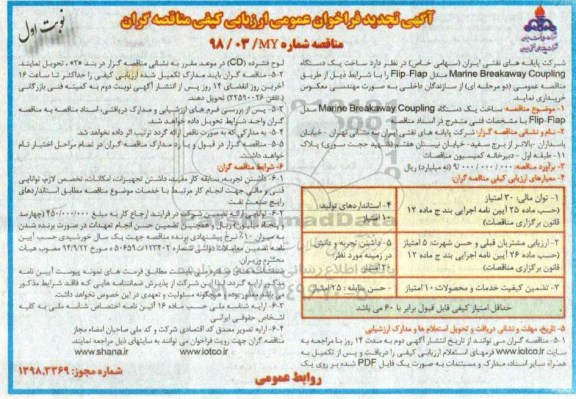 نوبت اول
آگهی تجدید فراخوان عمومی ارزیابی کیفی مناقصه گران
مناقصه شماره ۹۸/۰۳/MY
شرکت پایانه های نفتی ایران (سهامی خاص) در نظر دارد ساخت یک دستگاه
Marine Breakaway Coupling مدل Flip-Flap را با شرایط ذیل از طریق
مناقصه عمومی (دو مرحله ای) از سازندگان داخلی به صورت مهندسی معکوس
خریداری نمایند.
۱- موضوع مناقصه: ساخت یک دستگاه Marine Breakaway Coupling مدل
Flip-Flap با مشخصات فنی مندرج در اسناد مناقصه
۲- نام و نشانی مناقصه گزار: شرکت پایانه های نفتی ایران به نشانی تهران - خیابان
پاسداران - بالاتر از برج سفید- خیابان نیستان هفتم (شهید حجت سوری) پلاک
۱۱- طبقه اول - دبیرخانه کمیسیون مناقصات
۳- برآورد مناقصه: ۹/۰۰۰/۰۰۰/۰۰۰ (نه میلیارد) ریال
۴- معیارهای ارزیابی کیفی مناقصه گران:
۱- توان مالی: ۳۰ امتیاز
(حسب ماده ۲۵ آیین نامه اجرایی بند ج ماده ۱۲
قانون برگزاری مناقصات)
۴- استانداردهای تولید:
۱۰ امتیاز
۲- ارزیابی مشتریان قبلی و حسن شهرت: ۵ امتیاز
(حسب ماده ۲۶ آیین نامه اجرایی بند ج ماده ۱۲
قانون برگزاری مناقصات)
۵- داشتن تجربه و دانش
در زمینه مورد نظر:
۲۰ امتیاز
۳- تضمین کیفیت خدمات و محصولات: ۱۰ امتیاز
حسن سابقه: ۲۵ امتیاز
حداقل امتیاز کیفی قابل قبول برابر با ۶۰ می باشد
۵- تاریخ، مهلت و نشانی دریافت و تحویل استعلام ها و مدارک ارزشیابی
۵-۱- مناقصه گران می توانند از تاریخ انتشار آگهی دوم به مدت ۱۴ روز با مراجعه به
سایت www.iotco.ir فرمهای استعلام ارزیابی کیفی را دریافت و پس از تکمیل به
همراه سایر اسناد، مدارک و مستندات به صورت یک فایل PDF شده بر روی یک
لوح فشرده (CD) در موعد مقرر به نشانی مناقصه گزار در بند «۲» ، تحویل نمایند.
۵-۲- مناقصه گران باید مدارک تکمیل شده ارزیابی کیفی را حداکثر تا ساعت ۱۶
آخرین روز انقضای ۱۴ روز پس از انتشار آگهی نوبت دوم به کمیته فنی بازرگانی
(تلفن ۲۲۵۹۰۰۲۶) تحویل دهند.
۵-۳- پس از بررسی فرم های ارزشیابی و مدارک دریافتی، اسناد مناقصه به مناقصه
گران واجد شرایط تحویل داده خواهد شد.
۵-۴- به مدارکی که به صورت ناقص ارائه گردد ترتیب اثر داده نخواهد شد.
۵-۵- مناقصه گزار در قبول و یا رد مدارک مناقصه گران در تمام مراحل اختیار تام
خواهد داشت.
۶- شرایط مناقصه گران:
۶-۱- داشتن تجربه، سابقه کار مفید، داشتن تجهیزات، امکانات، تخصص لازم، توانایی
فنی و مالی جهت انجام کار مرتبط با خدمات موضوع مناقصه مطابق استانداردهای
رایج صنعت نفت
۶-۲- توانایی ارائه تضمین شرکت در فرایند ارجاع کار به مبلغ ۴۵۰/۰۰۰/۰۰۰ (چهارصد
و پنجاه میلیون) ریال و همچنین تضمین حسن انجام تعهدات در صورت برنده شدن
به میزان ۱۰٪ نرخ پیشنهادی برنده مناقصه جهت یک سال خورشیدی حسب آیین
محترم وزیران
۶-۴- ارایه شناسه ملی حسب ماده ۱۶ آیین نامه اختصاص شناسه ملی به کلیه
اشخاص حقوقی ایرانی
۶-۵- ارایه تصویر مصدق کد اقتصادی شرکت و کد ملی صاحبان امضاء مجاز
مناقصه گران جهت رویت فراخوان می توانند به سایتهای ذیل مراجعه نمایند.
www.iotco.ir www.shana.ir
روابط عمومی
شماره مجوز: ۱۳۹۸.۳۳۶۹